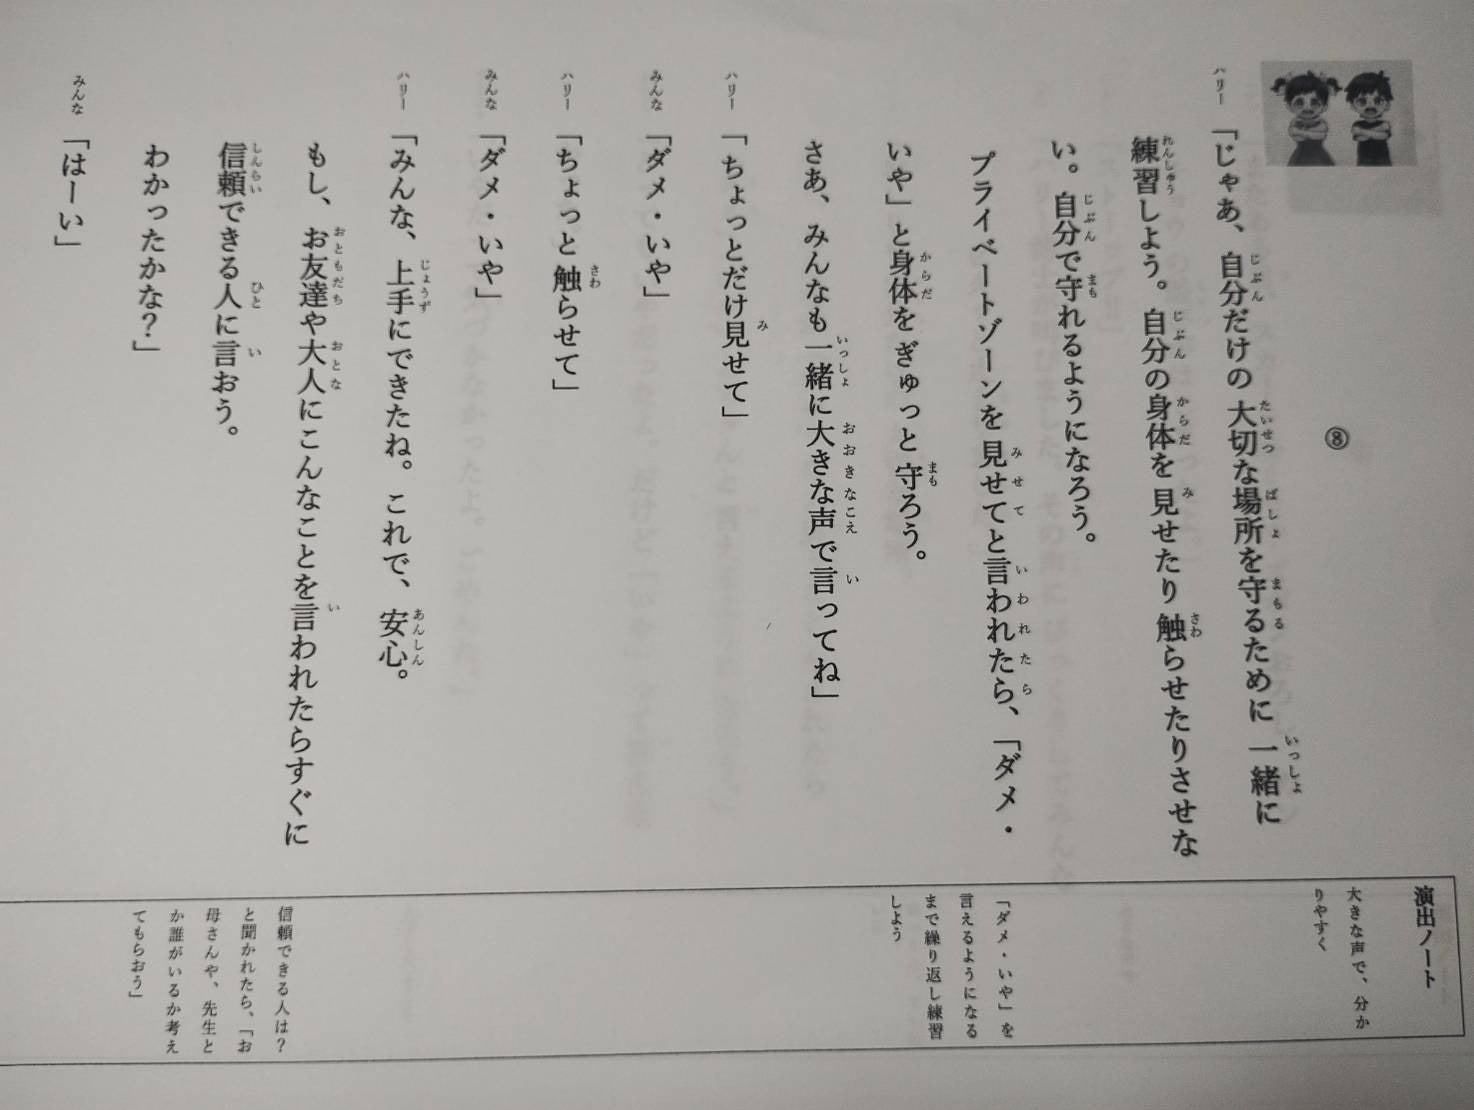 ⑧
ハリー「じゃあ、自分だけの大切な場所を守るために一緒に
練習しよう。自分の身体を見せたり触らせたりさせな
い。自分で守れるようになろう。
プライベートゾーンを見せてと言われたら、「ダメ・
いや」と身体をぎゅっと守ろう。
さあ、みんなも一緒に大きな声で言ってね」
ハリー「ちょっとだけ見せて」
みんな「ダメ・いや」
ハリー「ちょっと触らせて」
みんな「ダメ・いや」
ハリー「みんな、上手にできたね。これで、安心。
もし、お友達や大人にこんなことを言われたらすぐに
信頼できる人に言おう。
わかったかな？」
みんな「はーい」
演出ノート
大きな声で、分か
りやすく
「ダメ・いや」を
言えるようになる
まで繰り返し練習
しよう
信頼できる人は？
と聞かれたら、「お
母さんや、先生と
か誰がいるか考え
てもらおう」